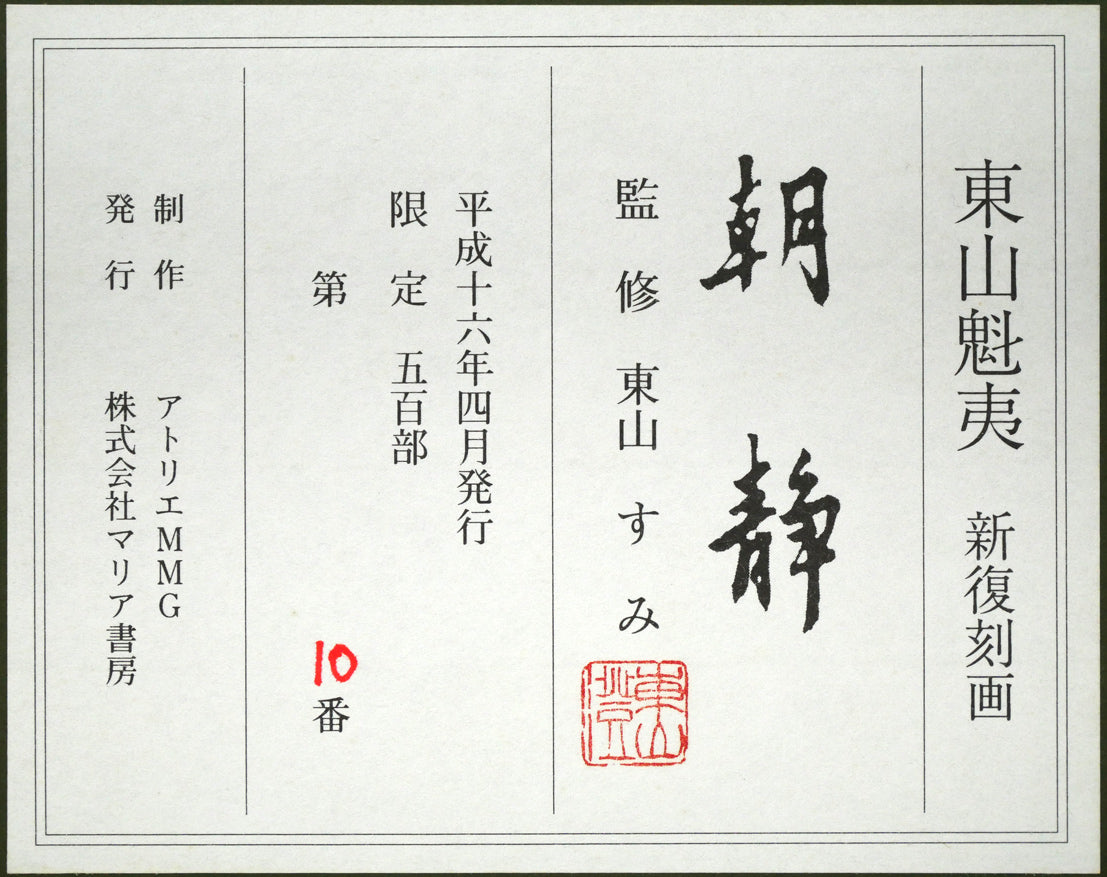 東山魁夷 新復刻画
朝静
監修 東山すみ
平成十六年四月発行
限定 五百部
第10番
制作 アトリエMMG
発行 株式会社マリア書房